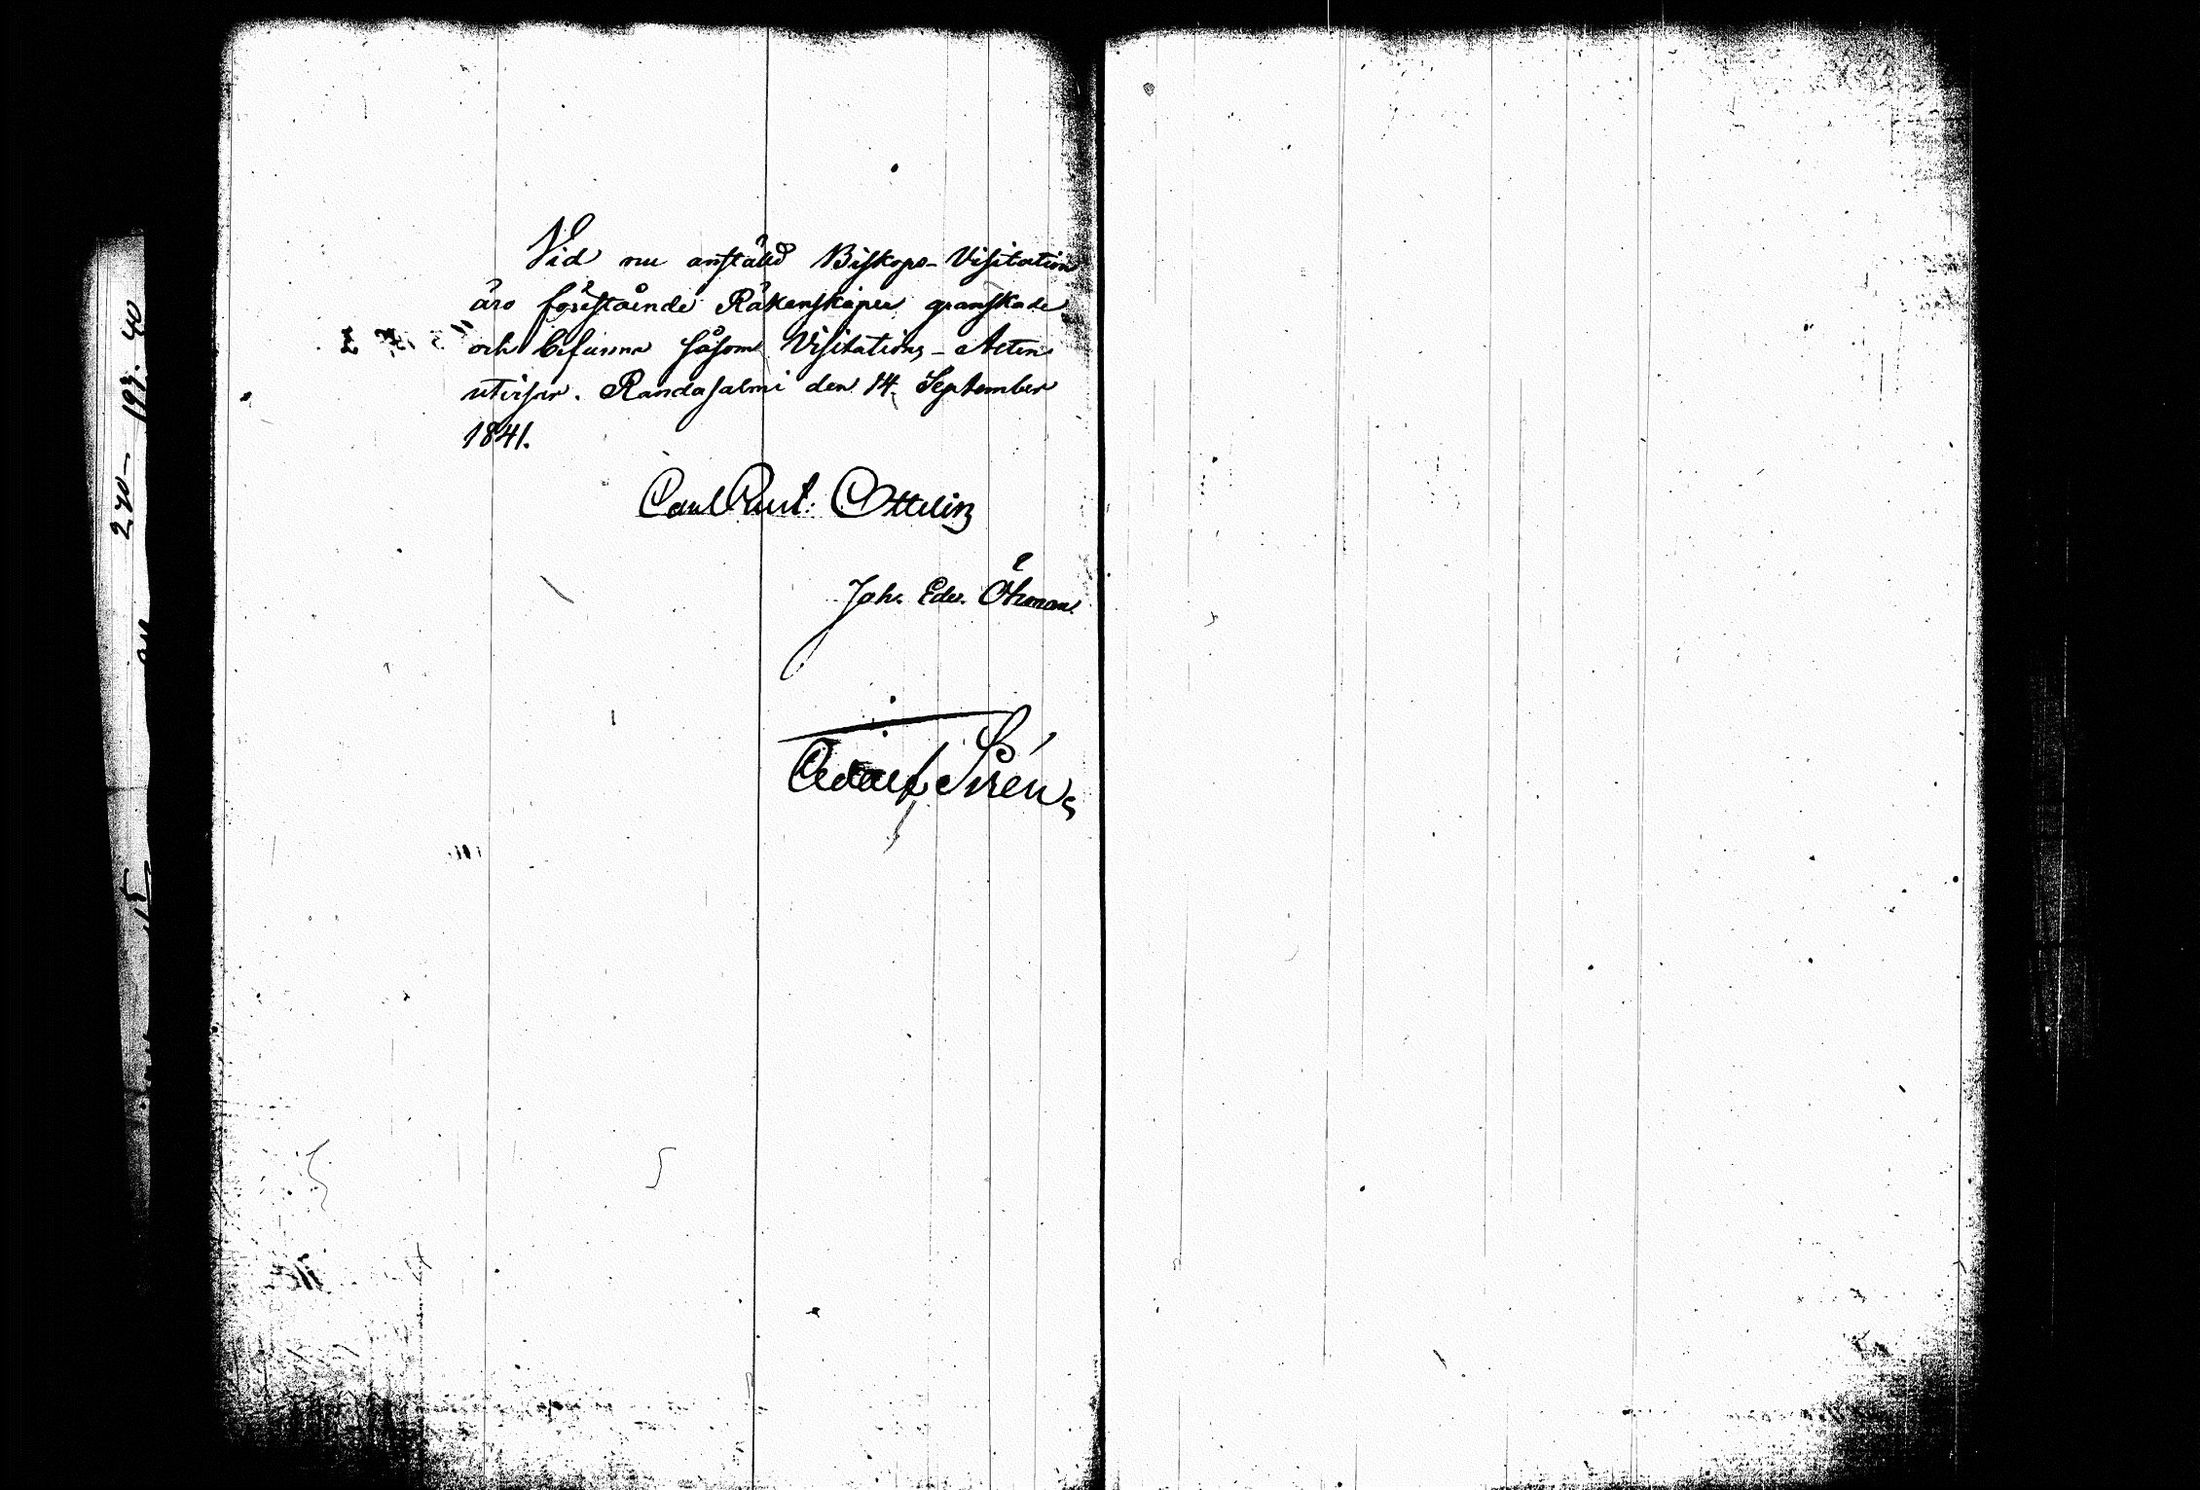 Vid nu anstäld Biskops-Visitation
äro förestående Räkenskaper granskade
och befunna såsom Visitations-Acten
utvisar. Randasalmi den 14 September
1841.
Carl Reinh. Ottelin
Joh. Edv. Öhman
Adolf Sirén
270 197. 40
15